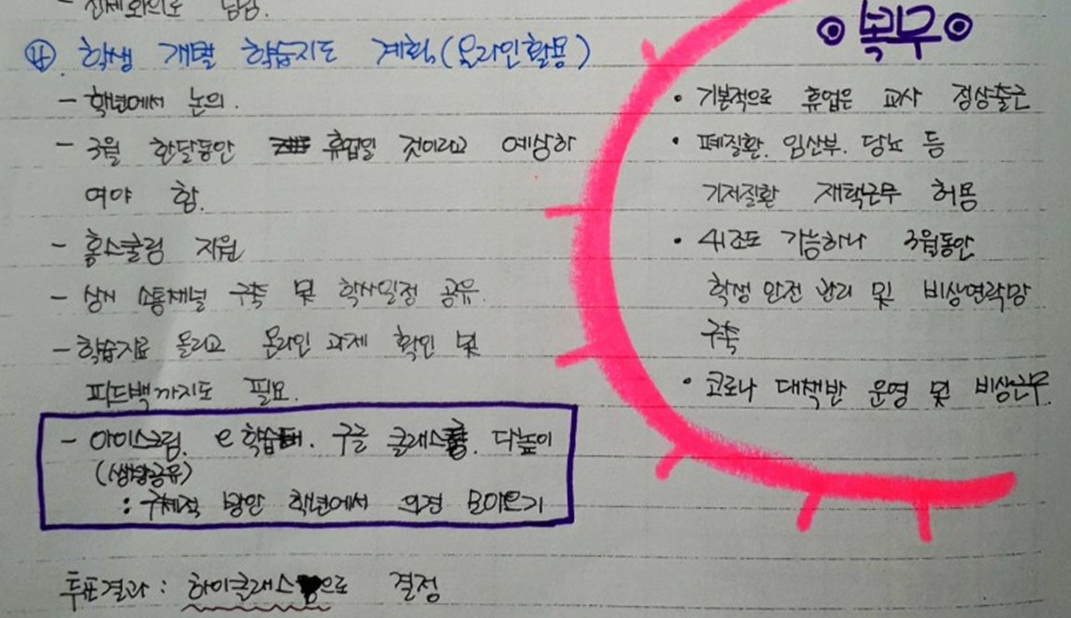 ④. 학생 개별 학습지도 계획(온라인활용)
- 학년에서 논의.
- 3월 한달동안 휴업일 것이라고 예상하
여야 함.
- 홈스쿨링 지원
- 상시 소통채널 구축 및 학사일정 공유.
- 학습자료 올리고 온라인 과제 확인 및
피드백까지도 필요.
- 아이스크림. e학습터. 구글 클래스룸. 다높이
(쌍방공유)
: 구체적 방안 학년에서 의견 모아오기
투표결과 : 하이클래스으로 결정
◎복무◎
• 기본적으로 휴업은 교사 정상출근
• 폐질환. 임산부. 당뇨 등
기저질환 재택근무 허용
• 41조도 가능하나 3월동안
학생 안전 관리 및 비상연락망
구축
• 코로나 대책반 운영 및 비상근무.